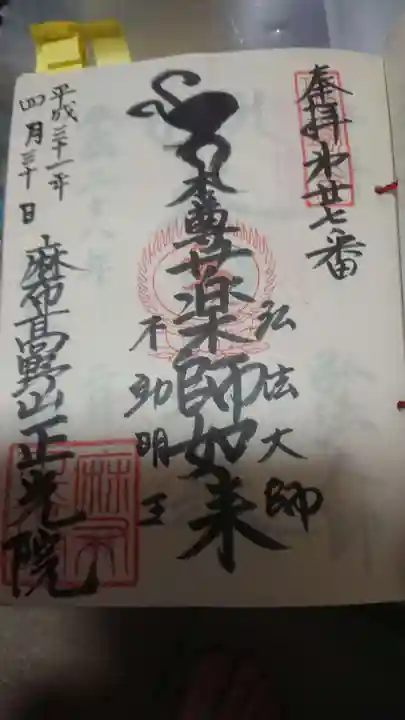 奉拝 第廿七番
本尊 薬師如来
弘法大師
不動明王
平成三十一年
四月三十日
麻布高野山 正光院